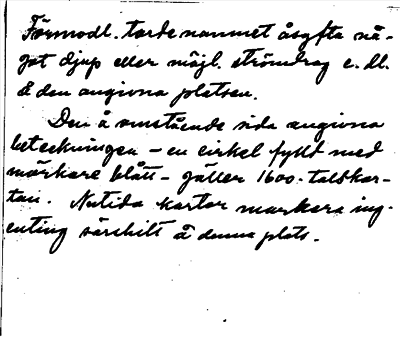 Förmodl. torde namnet åsyfta nå-
got djup eller möjl. strömdrag e. dl.
å den angivna platsen.
Den å omstående sida angivna
beteckningen - en cirkel fylld med
mörkare blått - gäller 1600-talskar-
tan. Nutida kartor markera ing-
enting särskilt å denna plats.